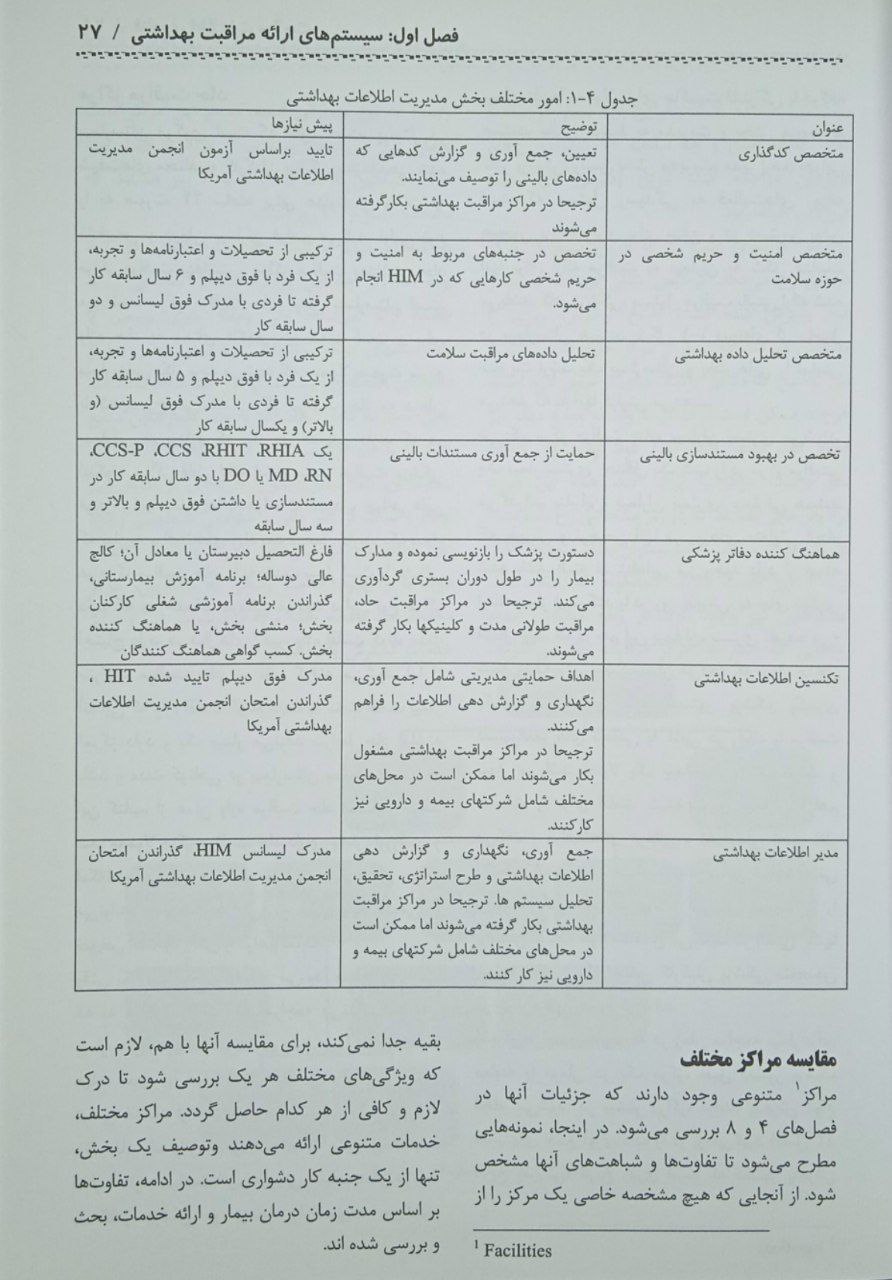 فصل اول: سیستم‌های ارائه مراقبت بهداشتی / ۲۷
جدول ۴-۱: امور مختلف بخش مدیریت اطلاعات بهداشتی
عنوان
توضیح
پیش نیازها
متخصص کدگذاری
تعیین، جمع آوری و گزارش کدهایی که
داده‌های بالینی را توصیف می‌نمایند.
ترجیحا در مراکز مراقبت بهداشتی بکارگرفته
می‌شوند
تایید براساس آزمون انجمن مدیریت
اطلاعات بهداشتی آمریکا
متخصص امنیت و حریم شخصی در
حوزه سلامت
تخصص در جنبه‌های مربوط به امنیت و
حریم شخصی کارهایی که در HIM انجام
می‌شود.
ترکیبی از تحصیلات و اعتبارنامه‌ها و تجربه،
از یک فرد با فوق دیپلم و ۶ سال سابقه کار
گرفته تا فردی با مدرک فوق لیسانس و دو
سال سابقه کار
متخصص تحلیل داده بهداشتی
تحلیل داده‌های مراقبت سلامت
ترکیبی از تحصیلات و اعتبارنامه‌ها و تجربه،
از یک فرد با فوق دیپلم و ۵ سال سابقه کار
گرفته تا فردی با مدرک فوق لیسانس (و
بالاتر) و یکسال سابقه کار
تخصص در بهبود مستندسازی بالینی
حمایت از جمع آوری مستندات بالینی
یک RHIA، RHIT، CCS، CCS-P،
RN، MD یا DO با دو سال سابقه کار در
مستندسازی یا داشتن فوق دیپلم و بالاتر و
سه سال سابقه
هماهنگ کننده دفاتر پزشکی
دستورت پزشک را بازنویسی نموده و مدارک
بیمار را در طول دوران بستری گردآوری
می‌کند. ترجیحا در مراکز مراقبت حاد،
مراقبت طولانی مدت و کلینیکها بکار گرفته
می‌شوند.
فارغ التحصیل دبیرستان یا معادل آن؛ کالج
عالی دوساله؛ برنامه آموزش بیمارستانی،
گذراندن برنامه آموزشی شغلی کارکنان
بخش؛ منشی بخش، یا هماهنگ کننده
بخش. کسب گواهی هماهنگ کنندگان
تکنسین اطلاعات بهداشتی
اهداف حمایتی مدیریتی شامل جمع آوری،
نگهداری و گزارش دهی اطلاعات را فراهم
می‌کنند.
ترجیحا در مراکز مراقبت بهداشتی مشغول
بکار می‌شوند اما ممکن است در محل‌های
مختلف شامل شرکتهای بیمه و دارویی نیز
کارکنند.
مدرک فوق دیپلم تایید شده HIT ،
گذراندن امتحان انجمن مدیریت اطلاعات
بهداشتی آمریکا
مدیر اطلاعات بهداشتی
جمع آوری، نگهداری و گزارش دهی
اطلاعات بهداشتی و طرح استراتژی، تحقیق،
تحلیل سیستم ها. ترجیحا در مراکز مراقبت
بهداشتی بکار گرفته می‌شوند اما ممکن است
در محل‌های مختلف شامل شرکتهای بیمه و
دارویی نیز کار کنند.
مدرک لیسانس HIM، گذراندن امتحان
انجمن مدیریت اطلاعات بهداشتی آمریکا
مقایسه مراکز مختلف
مراکز¹ متنوعی وجود دارند که جزئیات آنها در
فصل‌های ۴ و ۸ بررسی می‌شود. در اینجا، نمونه‌هایی
مطرح می‌شود تا تفاوت‌ها و شباهت‌های آنها مشخص
شود. از آنجایی که هیچ مشخصه خاصی یک مرکز را از
¹ Facilities
بقیه جدا نمی‌کند، برای مقایسه آنها با هم، لازم است
که ویژگی‌های مختلف هر یک بررسی شود تا درک
لازم و کافی از هر کدام حاصل گردد. مراکز مختلف،
خدمات متنوعی ارائه می‌دهند وتوصیف یک بخش،
تنها از یک جنبه کار دشواری است. در ادامه، تفاوت‌ها
بر اساس مدت زمان درمان بیمار و ارائه خدمات، بحث
و بررسی شده اند.